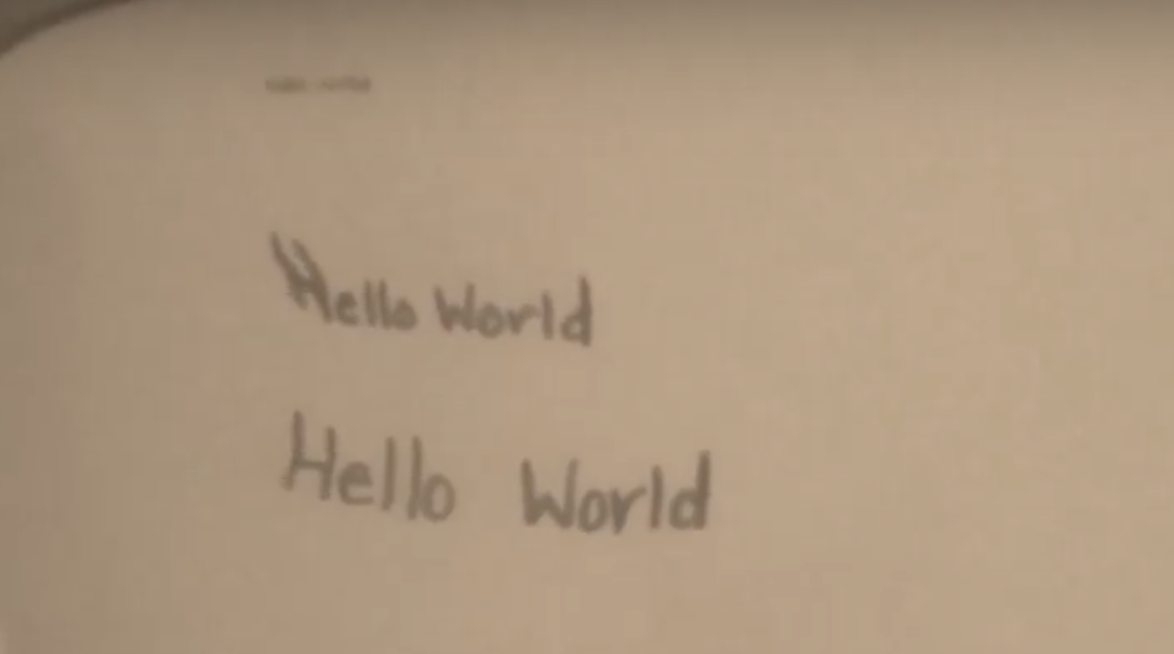 Hello World
Hello World